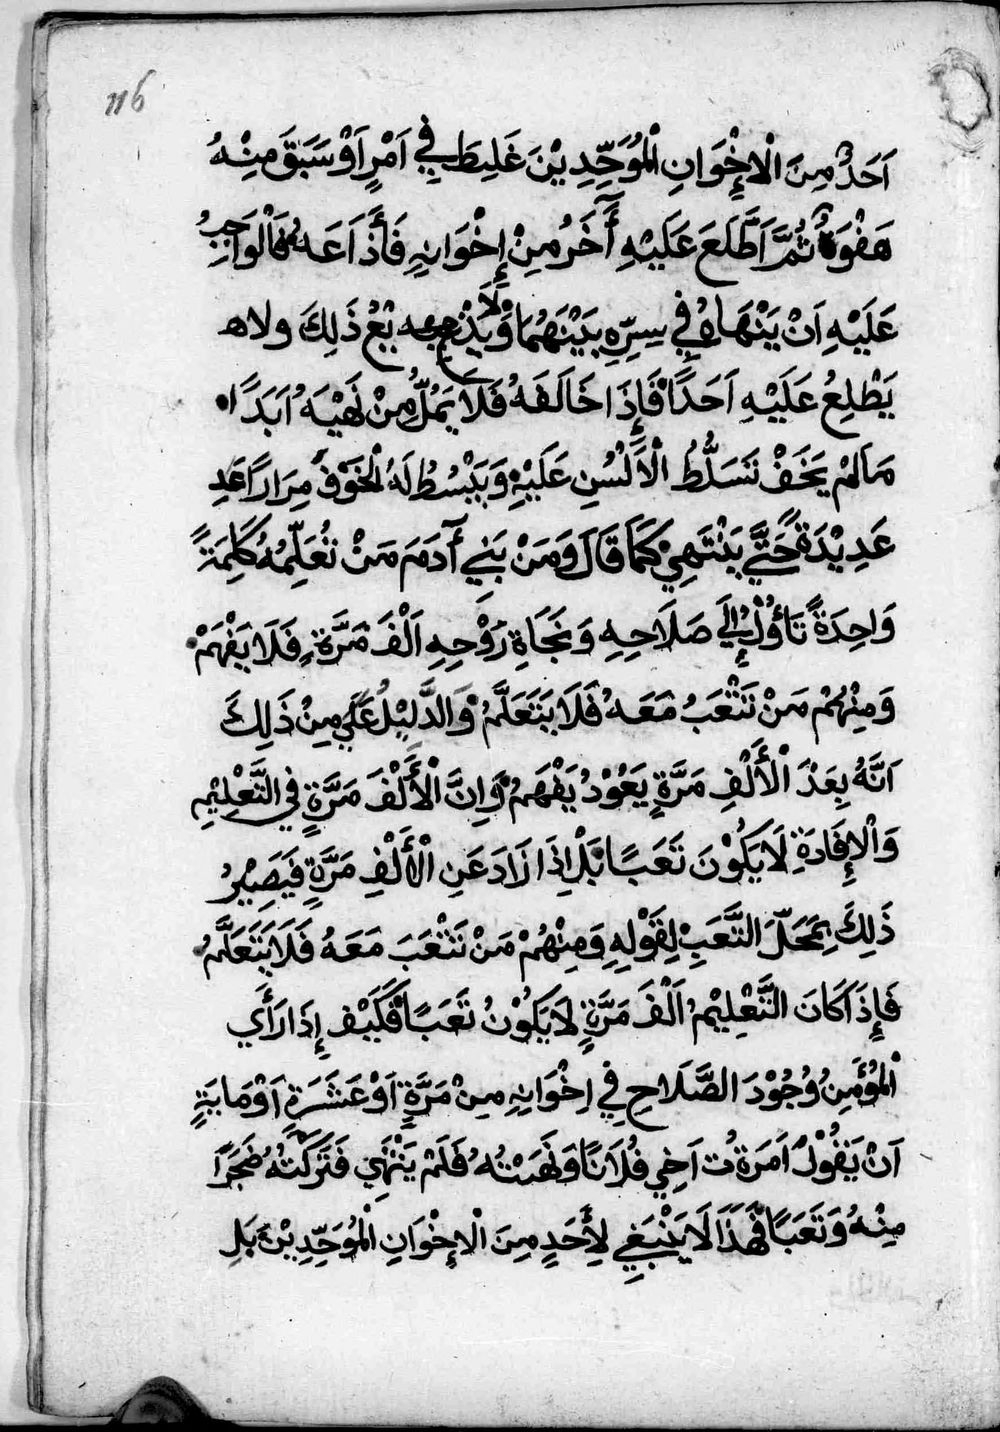 116
اَحَدٌ مِنَ الْاِخْوَانِ الْمُوَحِّدِيْنَ غَلِيطَ فِي اَمْرٍ اَوْ سَبَقَ مِنْهُ
هَفْوَةٌ ثُمَّ اَطَّلَعَ عَلَيْهِ آَخَرُ مِنْ إِخْوَانِهِ فَأَذَاعَهُ فَالْوَاجِبُ
عَلَيْهِ اَنْ يَنْهَاهُ فِي سِرِّهِ بَيْنَهُمَا وَلَا يُذِيعُ ذَلِكَ ولا
يَطْلِعُ عَلَيْهِ اَحَدًا فَإِذَا خَالَفَهُ فَلَا يَمُلُّ مِنْ نَهْيَهُ اَبَدًا
مَالَمْ يَخَفْ تَسَلُّطُ الْأَلْسُنِ عَلَيْهِ وَيَبْسُطُ لَهُ الْخَوْفَ مِرَارًا عَدِ
عَدِيْدَةً حَتَّي يَنْتَهِيْ كَمَا قَالَ وَمَنْ بَنِي آَدَمَ مَنْ تُعَلِّمُهُ كَلِمَةً
وَاحِدَةً تَأَوُلْ إِلَي صَلَاحِهِ وَنَجَاةِ رَوْحِهِ اَلْفَ مَرَّةٍ فَلَا يَفْهَمْ
وَمِنْهُمْ مَنْ تَتْعَبُ مَعَهُ فَلَا يَتَعَلَّمُ وَالدَّلِيْلُ عَلَي مِنْ ذَلِكَ
اَنَّهُ بِعَدْ الْأَلْفِ مَرَّةٍ يَعُوْدُ يَفْهَمُ وَاِنَّ الْأَلْفَ مَرَّةٍ فِي التَّعْلِيْمِ
وَالْإِفَادَةِ لَا يَكُوْنَ تَعَبًا بَلْ اِذَا زَادَ عَنِ الْأَلْفِ مَرَّةٍ فَيَصِيْرُ
ذَلِكَ بِمَحَلِّ التَّعَبِ لِقَوْلِهِ وَمِنْهُمْ مَنْ تَتْعَبَ مَعَهُ فَلَا يَتَعَلَّمُ
فَإِذَا كَانَ التَّعْلِيْمُ اَلْفَ مَرَّةٍ لَا يَكُوْنُ تَعَبًا فَكَيْف إِذَا رَأَي
الْمُؤْمِنُ وُجُوْدَ الصَّلَاحِ فِي اِخْوَانِهِ مِنْ مَرَّةٍ اَوْ عَشَرَةِ اَوْ مَايَةٍ
اَنْ يَقُوْلُ اَمَرَةْتُ اَخِي فُلَانًا وَنَهَيْتُهُ فَلَمْ يَنْتَهِي فَتَرَكْتُهُ ضَجَرًا
مِنْهُ وَتَعَبًا فَهَذَا لَا يَنْبَغِي لِأَحَدٍ مِنَ الْاِخْوَانِ الْمُوَحِّدِيْنَ بَلِ